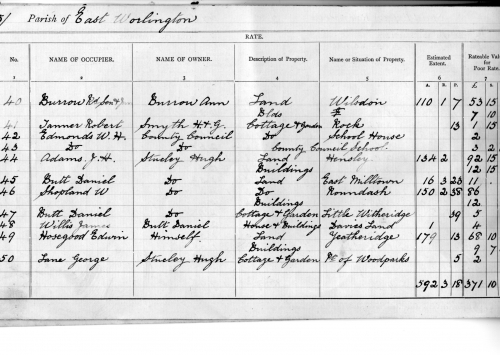 Parish of East Worlington
RATE.
No. NAME OF OCCUPIER. NAME OF OWNER. Description of Property. Name or Situation of Property. Estimated Extent. Rateable Val for Poor Rate.
1 2 3 4 5 6 7
A. R. P. £
40 Burrow Burrow Ann Land Wilsdon 110 1 7 53 15
Blds 7 10
41 Tanner Robert Smyth H. G. Cottage & Garden Rock 13 1 15
42 Edmonds W. H. County Council Do School House 2
43 Do Do County Council School. 3
44 Adams J. H. Stucley Hugh Land Hensley 134 2 92 15
Buildings 12 15
45 Butt Daniel Do Land East Milltown 16 3 23 11
46 Shopland W Do Do Roundash 150 2 38 86
Buildings 12
47 Butt Daniel Do Cottage & Garden Little Witheridge 39 5
48 Willis James Butt Daniel House & Buildings Davies Land 1 4
49 Hosegood Edwin Himself Land Yeatheridge 179 13 68 10
Buildings 9 7
50 Lane George Stucley Hugh Cottage & Garden Pt. of Woodparks 5 2
592 3 18 371 10